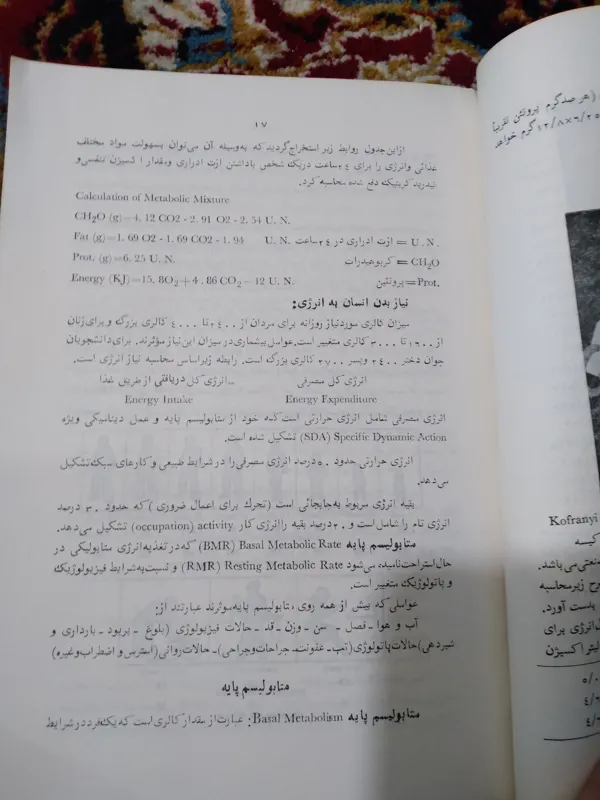 ۱۷
ازاین جدول روابط زیر استخراج گردید که به‌وسیله آن می‌توان بسهولت مواد مختلف
غذائی وانرژی را برای ۲۴ ساعت دریک شخص باداشتن ازت ادراری ومقدار اکسیژن تنفسی و
انیدرید کربنیک دفع شده محاسبه کرد.
Calculation of Metabolic Mixture
CH2O (g)=4. 12 CO2 - 2. 91 O2 - 2. 54 U. N.
Fat (g)=1. 69 O2 - 1. 69 CO2 - 1. 94 U. N. ازت ادراری در ۲۴ ساعت = U. N.
Prot. (g)=6. 25 U. N. کربوهیدرات = CH2O
Energy (KJ)=15. 8O2+4. 86 CO2-12 U. N. پروتئین=Prot.
نیاز بدن انسان به انرژی:
میزان کالری موردنیاز روزانه برای مردان از ۲۴۰۰ تا ۴۰۰۰ کالری بزرگ و برای زنان
از ۱۶۰۰ تا ۳۰۰۰ کالری متغیر است. عوامل بیشماری در میزان این نیاز مؤثرند. برای دانشجویان
جوان دختر ۲۴۰۰ وپسر ۲۷۰۰ کالری بزرگ است. رابطه زیراساس محاسبه نیاز انرژی است.
انرژی کل مصرفی = انرژی کل دریافتی از طریق غذا
Energy Intake Energy Expenditure
انرژی مصرفی شامل انرژی حرارتی است که خود از متابولیسم پایه و عمل دینامیکی ویژه
Specific Dynamic Action (SDA) تشکیل شده است.
انرژی حرارتی حدود ۵۰ درصد انرژی مصرفی را در شرایط طبیعی و کارهای سبک تشکیل
می‌دهد.
بقیه انرژی مربوط به جابجائی است (تحرک برای اعمال ضروری) که حدود ۳۰ درصد
انرژی تام را شامل است و ۲۰ درصد بقیه را انرژی کار activity (occupation) تشکیل می‌دهد.
متابولیسم پایه Basal Metabolic Rate (BMR) که در تغذیه انرژی متابولیکی در
حال استراحت نامیده می‌شود Resting Metabolic Rate (RMR) و نسبت به شرایط فیزیولوژیک
و پاتولوژیک متغیر است.
عواملی که بیش از همه روی متابولیسم پایه موثرند عبارتند از:
آب و هوا ـ فصل ـ سن ـ وزن ـ قد ـ حالات فیزیولوژی (بلوغ ـ پریود ـ بارداری و
شیردهی) حالات پاتولوژی (تب ـ عفونت ـ جراحات وجراحی) ـ حالات روانی (استرس و اضطراب وغیره)
متابولیسم پایه
متابولیسم پایه Basal Metabolism: عبارت از مقدار کالری است که یک فرد در شرایط
(هر صد گرم پروتئن تقریباً
گرم خواهد
Kofranyi
کیسه
صنعتی می باشد.
رح زیرمحاسبه
بدست آورد.
انرژی برای
لیتر اکسیژن